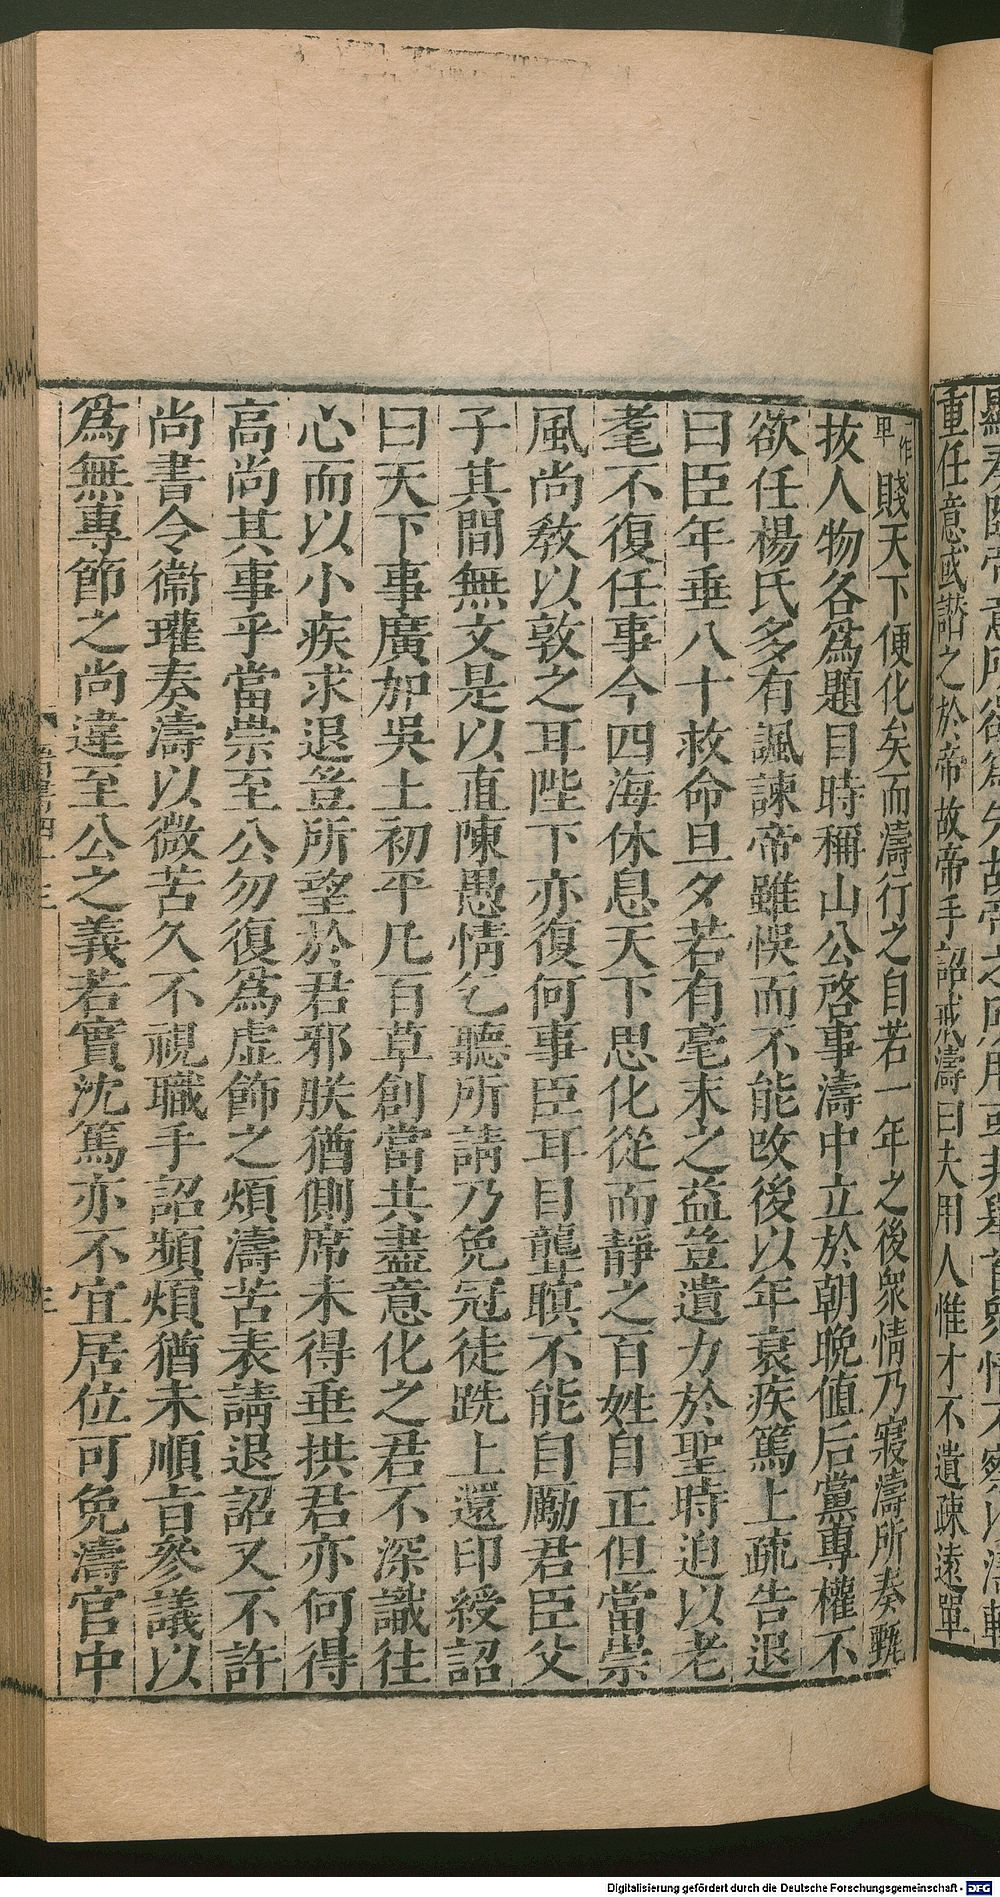 重任意或譖之於帝故帝手詔戒濤曰夫用人惟才不遺疎遠單
一作卑賤天下便化矣而濤行之自若一年之後衆情乃寢濤所奏甄
拔人物各爲題目時稱山公啓事濤中立於朝晩值后黨專權不
欲任楊氏多有諷諫帝雖悞而不能攺後以年衰疾篤上疏告退
曰臣年垂八十救命旦夕若有毫末之益豈遺力於聖時迫以老
耄不復任事今四海休息天下思化從而靜之百姓自正但當崇
風尚敎以敦之耳陛下亦復何事臣耳目聾瞑不能自勵君臣父
子其間無文是以直陳愚情乞聽所請乃免冠徒跣上還印綬詔
曰天下事廣加吳土初平凡百草創當共盡意化之君不深識往
心而以小疾求退豈所望於君邪朕猶側席未得垂拱君亦何得
高尚其事乎當崇至公勿復爲虛飾之煩濤苦表請退詔又不許
尚書令衞瓘奏濤以微苦久不視職手詔頻煩猶未順旨參議以
爲無專節之尚違至公之義若實沈篤亦不宜居位可免濤官中
Digitalisierung gefördert durch die Deutsche Forschungsgemeinschaft - DFG